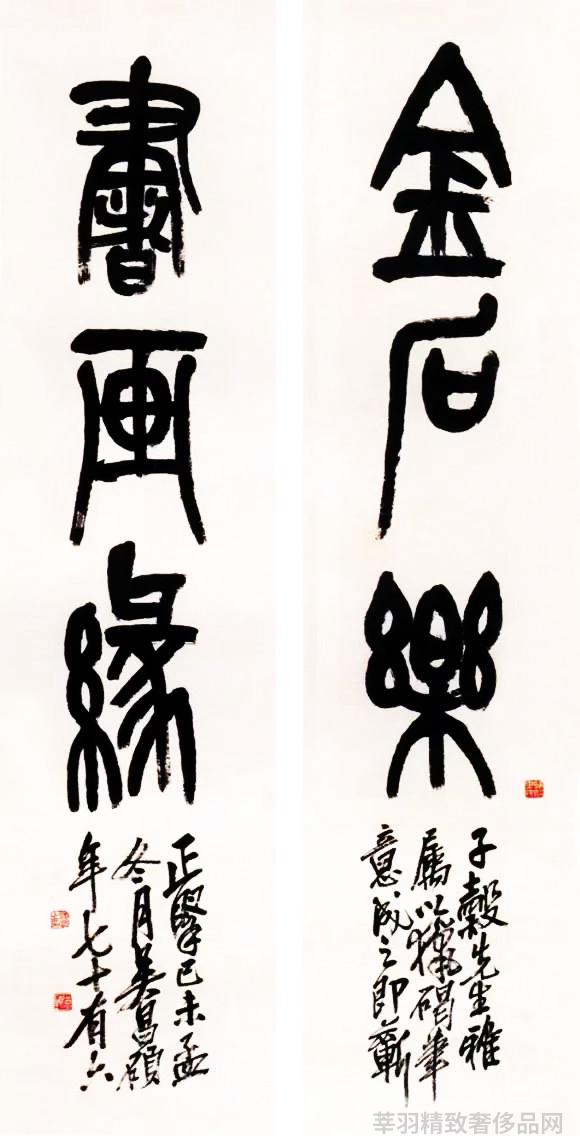 金石樂
書画緣
子穀先生雅
屬以獵碣筆
意成之即蘄
正擧己未孟
冬月吳昌碩
年七十有六
莘羽精致奢侈品网